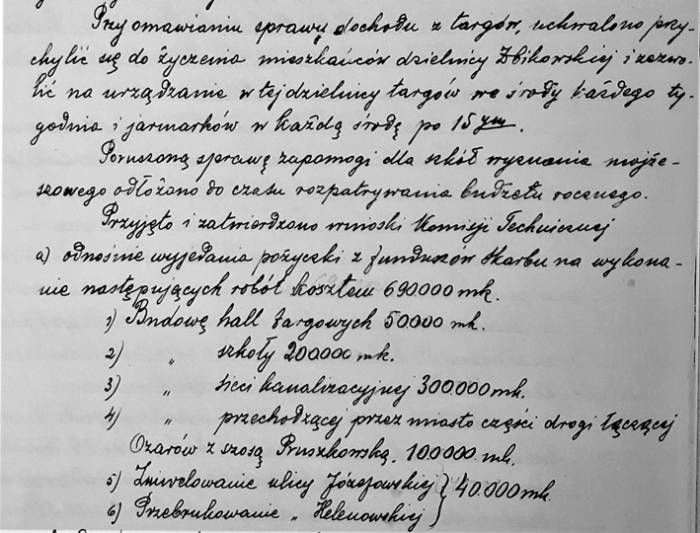 Przy omawianiu sprawy dochodu z targów, uchwalono przy-
chylić się do życzenia mieszkańców dzielnicy Żbikowskiej i zezwo-
lić na urządzanie w tej dzielnicy targów we środy każdego ty-
godnia i jarmarków w każdą środę po 15ym.
Poruszoną sprawę zapomogi dla szkół wyznania mojże-
szowego odłożono do czasu rozpatrywania budżetu rocznego.
Przyjęto i zatwierdzono wnioski Komisji Technicznej
a) odnośnie wyjednania pożyczki z funduszów Skarbu na wykona-
nie następujących robót kosztem 690.000 mk.
1) Budowę hall targowych 50.000 mk.
2) " szkoły 200.000 mk.
3) " sieci kanalizacyjnej 300.000 mk.
4) " przechodzącej przez miasto części drogi łączącej
Ożarów z szosą Pruszkowską. 100.000 mk.
5) Zniwelowanie ulicy Józefowskiej } 40.000 mk.
6) Przebrukowanie " Helenowskiej